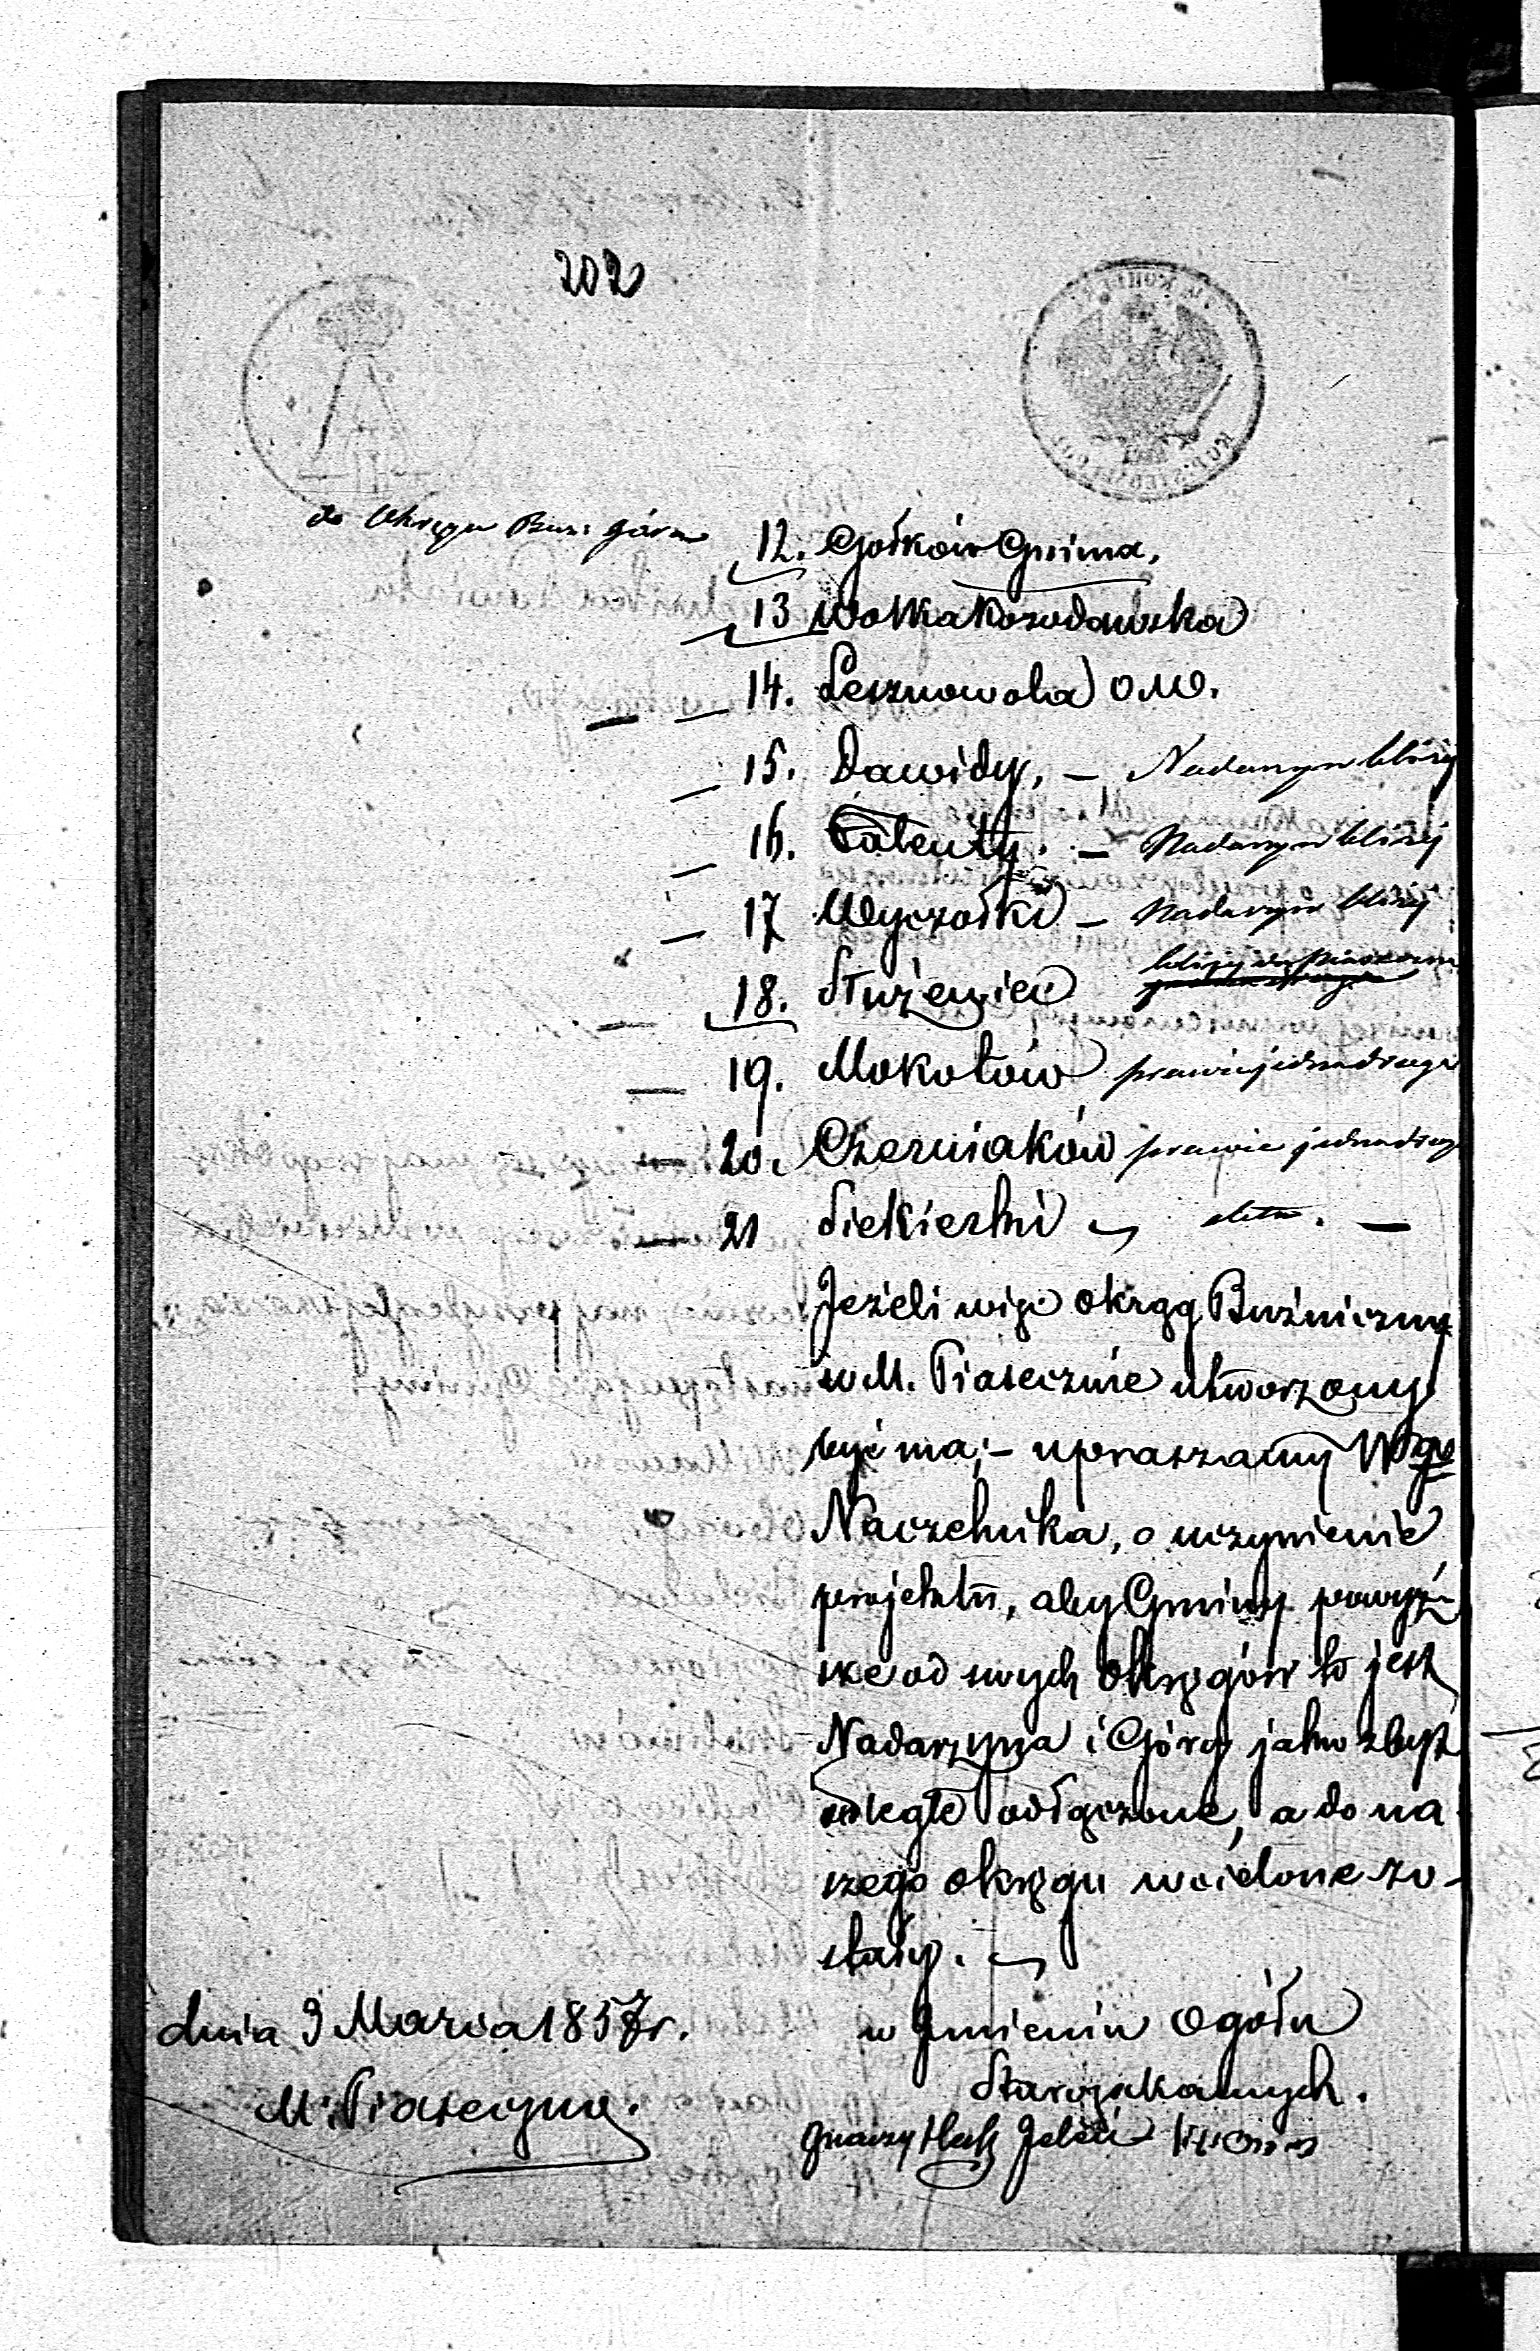 202
do Okręgu Buź: Góra
12. Gołków Gmina,
13 Wolka Kozodawska
14. Lesznowola O.W.
15. Dawidy, — Nadarzyn bliżej
16. Falenty. — Nadarzyn bliżej
17 Wyczołki — Nadarzyn bliżej
18. Służewiec bliżej do Piaseczna
19. Mokotów prawie jedna droga
20. Czerniaków prawie jedna drog
21 Siekierki — detto. —
Jeżeli więc okrąg Buźniczny
w M. Piasecznie utworzony
być ma; — upraszamy Wgo
Naczelnika, o uczynienie
projektu, aby Gminy powyż-
sze od swych Okręgów to jest
Nadarzyna i Góry jako zbyt
odległe odłączone, a do na
szego okręgu wcielone zo-
stały. —
dnia 9 Marca 1857 r.
w Imieniu Ogółu
M: Piaseczno.
Starozakonnych.